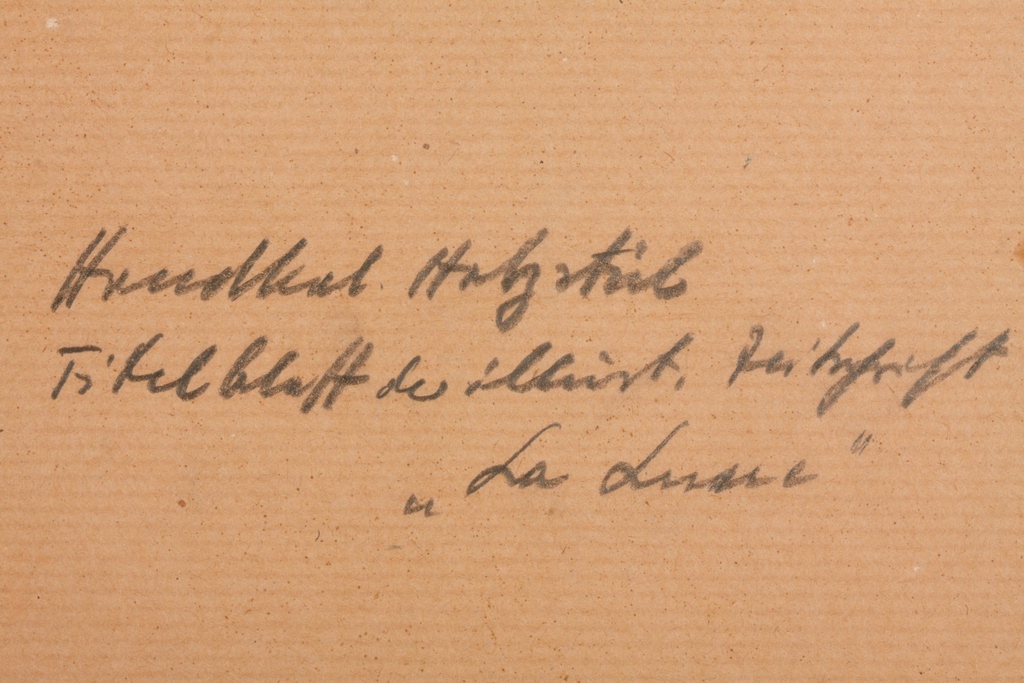 Handkol. Holzstich
Titelblatt der illustr. Zeitschrift
„La Lune"